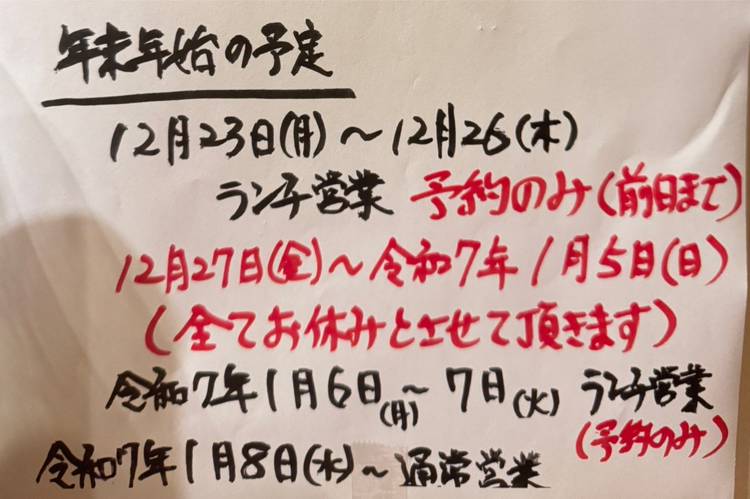 年末年始の予定
12月23日(月)～12月26(木)
ランチ営業 予約のみ(前日まで)
12月27日(金)～令和7年1月5日(日)
(全てお休みとさせて頂きます)
令和7年1月6日(月)～7日(火) ランチ営業
(予約のみ)
令和7年1月8日(水)～通常営業